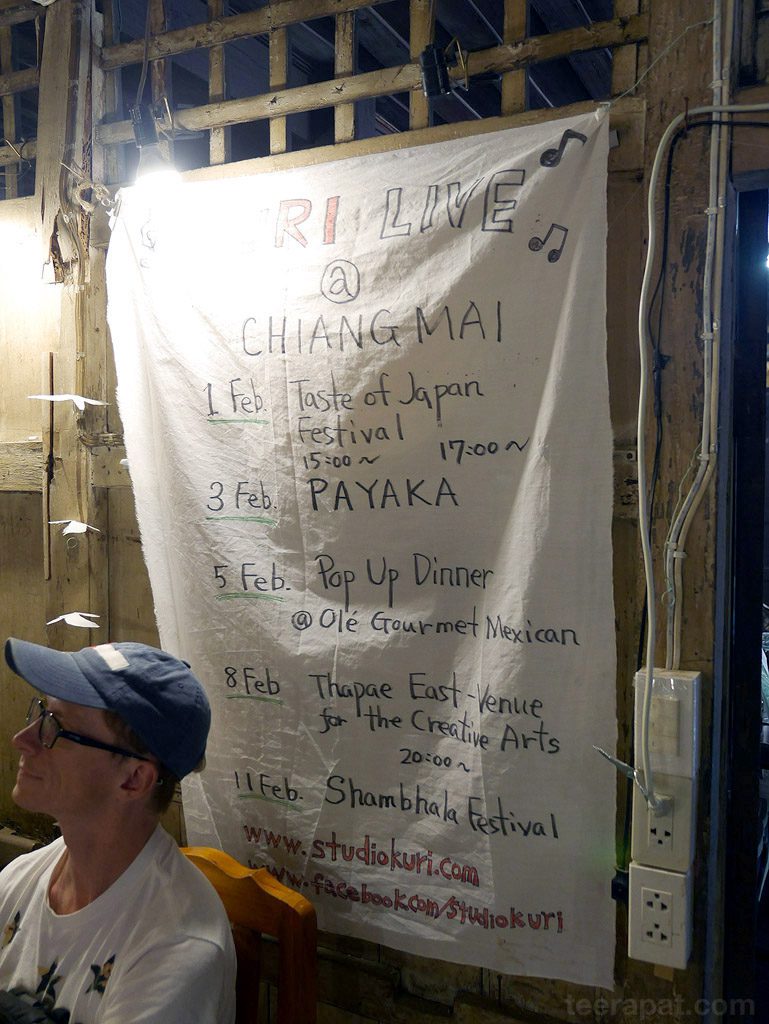 RI LIVE
@
CHIANG MAI
1 Feb. Taste of Japan
Festival
15:00~ 17:00~
3 Feb. PAYAKA
5 Feb. Pop Up Dinner
@ Olé Gourmet Mexican
8 Feb Thapae East-Venue
for the Creative Arts
20:00~
11 Feb. Shambhala Festival
www.studiokuri.com
www.facebook.com/studiokuri
teerapat.com